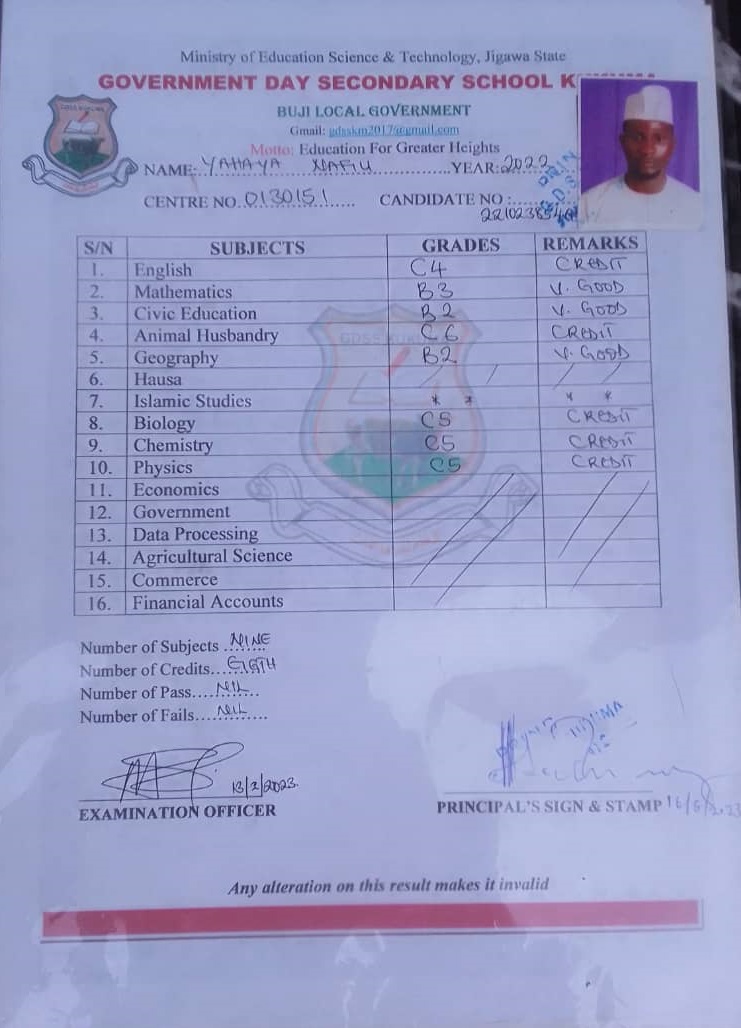 Ministry of Education Science & Technology, Jigawa State
GOVERNMENT DAY SECONDARY SCHOOL
BUJI LOCAL GOVERNMENT
Gmail: gdsskm2017@gmail.com
Motto: Education For Greater Heights
NAME: YAHAYA NAFIU YEAR: 2022
CENTRE NO. 0130151 CANDIDATE NO :
S/N SUBJECTS GRADES REMARKS
1. English C4 CREDIT
2. Mathematics B3 V. GOOD
3. Civic Education B2 V. GOOD
4. Animal Husbandry C6 CREDIT
5. Geography B2 V. GOOD
6. Hausa
7. Islamic Studies * * * *
8. Biology C5 CREDIT
9. Chemistry C5 CREDIT
10. Physics C5 CREDIT
11. Economics
12. Government
13. Data Processing
14. Agricultural Science
15. Commerce
16. Financial Accounts
Number of Subjects NINE
Number of Credits EIGTH
Number of Pass NIL
Number of Fails NIL
13/2/2023
EXAMINATION OFFICER
PRINCIPAL'S SIGN & STAMP
Any alteration on this result makes it invalid